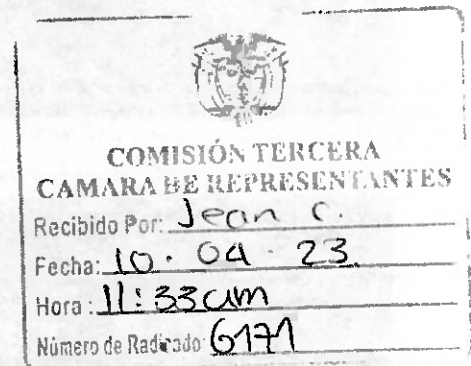 COMISIÓN TERCERA
CAMARA DE REPRESENTANTES
Recibido Por: Jean C.
Fecha: 10 · 04 · 23
Hora: 11:33am
Número de Radicado: 6171